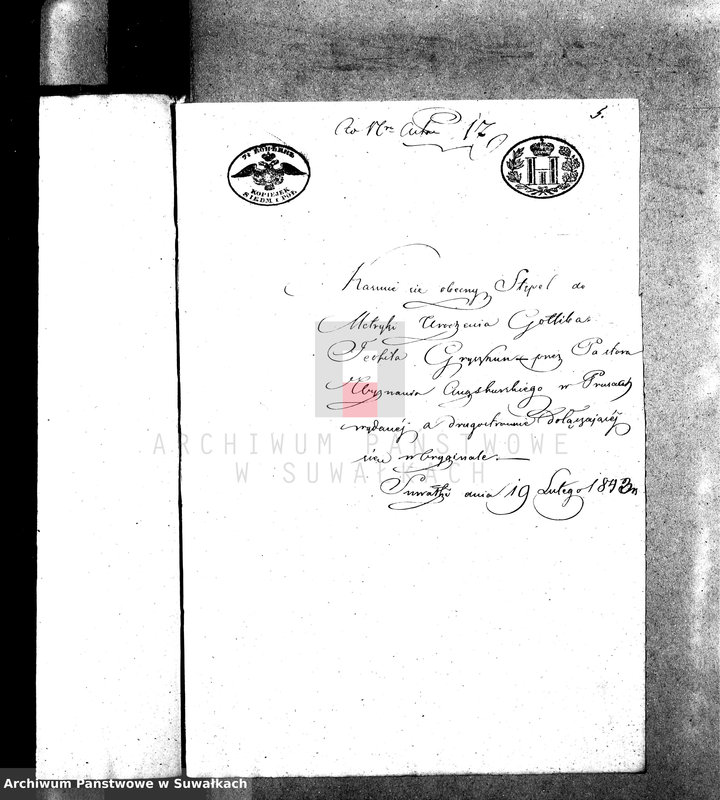 5.
Do Nru Aktu 17
7½ КОПѢЕКЪ
KOPIEJEK
SIEDM I PÓŁ
Kasuie się obecny Stępel do
Metryki Urodzenia Gotliba
Teofila Gryszkun przez Pastora
Wyznania Augsburskiego w Prusach
wydanej a drugostronnie dołączającej
się w Oryginale.—
Suwałki dnia 19 Lutego 1843 r.
ARCHIWUM PAŃSTWOWE
W SUWAŁKACH
Archiwum Państwowe w Suwałkach